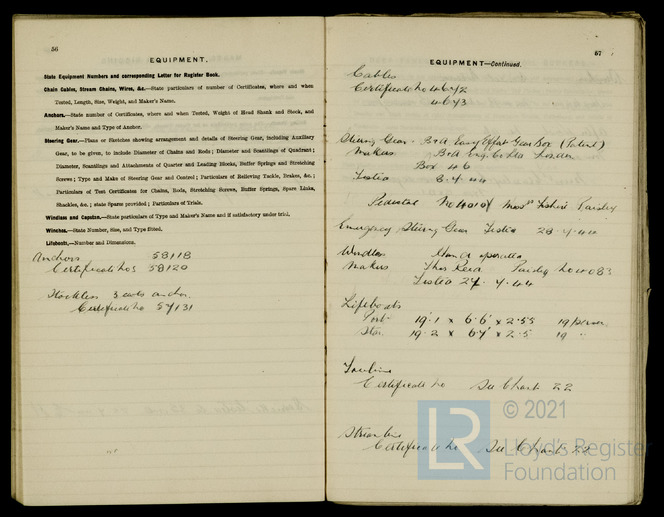 56
EQUIPMENT.
State Equipment Numbers and corresponding Letter for Register Book.
Chain Cables, Stream Chains, Wires, &c.—State particulars of number of Certificates, where and when
Tested, Length, Size, Weight, and Maker's Name.
Anchors.—State number of Certificates, where and when Tested, Weight of Head Shank and Stock, and
Maker's Name and Type of Anchor.
Steering Gear.—Plans or Sketches showing arrangement and details of Steering Gear, including Auxiliary
Gear, to be given, to include Diameter of Chains and Rods; Diameter and Scantlings of Quadrant;
Diameter, Scantlings and Attachments of Quarter and Leading Blocks, Buffer Springs and Stretching
Screws; Type and Make of Steering Gear and Control; Particulars of Relieving Tackle, Brakes, &c.;
Particulars of Test Certificates for Chains, Rods, Stretching Screws, Buffer Springs, Spare Links,
Shackles, &c.; state Spares provided; Particulars of Trials.
Windlass and Capstan.—State particulars of Type and Maker's Name and if satisfactory under trial.
Winches.—State Number, Size, and Type fitted.
Lifeboats.—Number and Dimensions.
Anchors 58118
Certificate Nos 58120
Stockless 3 cwts anchor
Certificate No 57131
57
EQUIPMENT—Continued.
Cables
Certificate No 4672
4673
Steering Gear - B & A Easy Effort Gear Box (Patent)
Makers B & A Eng. Co Ltd London
Box 46
Tested 8.4.44
Pedestal No 4010 Fishers Paisley
Emergency Steering Gear Tested 28.4.44
Windlass Hand operated
Makers Thos Reid Paisley No 4083
Tested 27.4.44
Lifeboats
Port 19.1 x 6.6 x 2.55 19 persons
Star. 19.2 x 6.7 x 2.5 19 "
Towline
Certificate No See Chart 22
Streamline
Certificate No See Chart 22
LR
© 2021
Lloyd's Register
Foundation